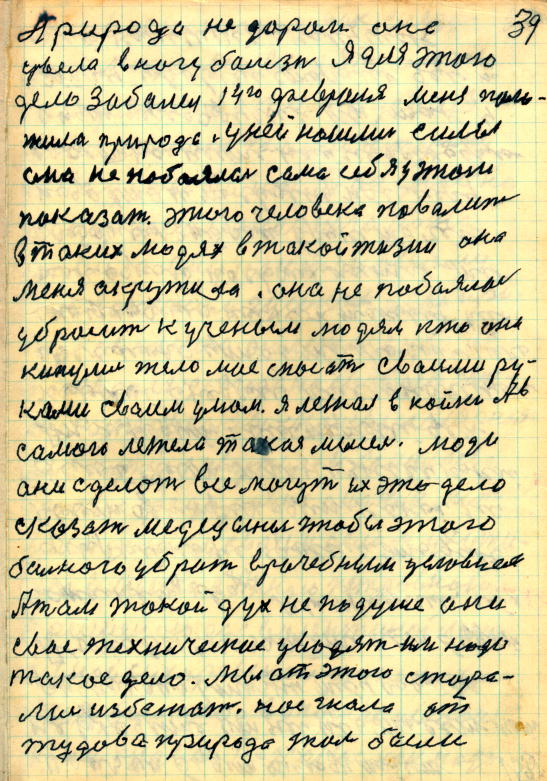 39
Природа не даром она
ввела в ногу болезн Я для этого
дело забалел 14го февраля меня поло-
жила природа. у ней нашли силы
она не побоялас сама себя у этом
показат. этого человека повалит
в таких людях в такой жизни она
меня окружила. она не побаялас
убросит к ученым людям кто они
кинулис тело мае спасат сваими ру-
ками сваим умом. я лежал в койки Ав
самого лежела такая мысел. люди
ани сделот все могут их это дело
сказат медецыны чтобы этого
балного убрат врачебным условием
Атам такой дух не по душе они
свае техническое уводят им надо
такое дело. мы от этого стара-
лис избежат. нас гнала от
тудова природа там были